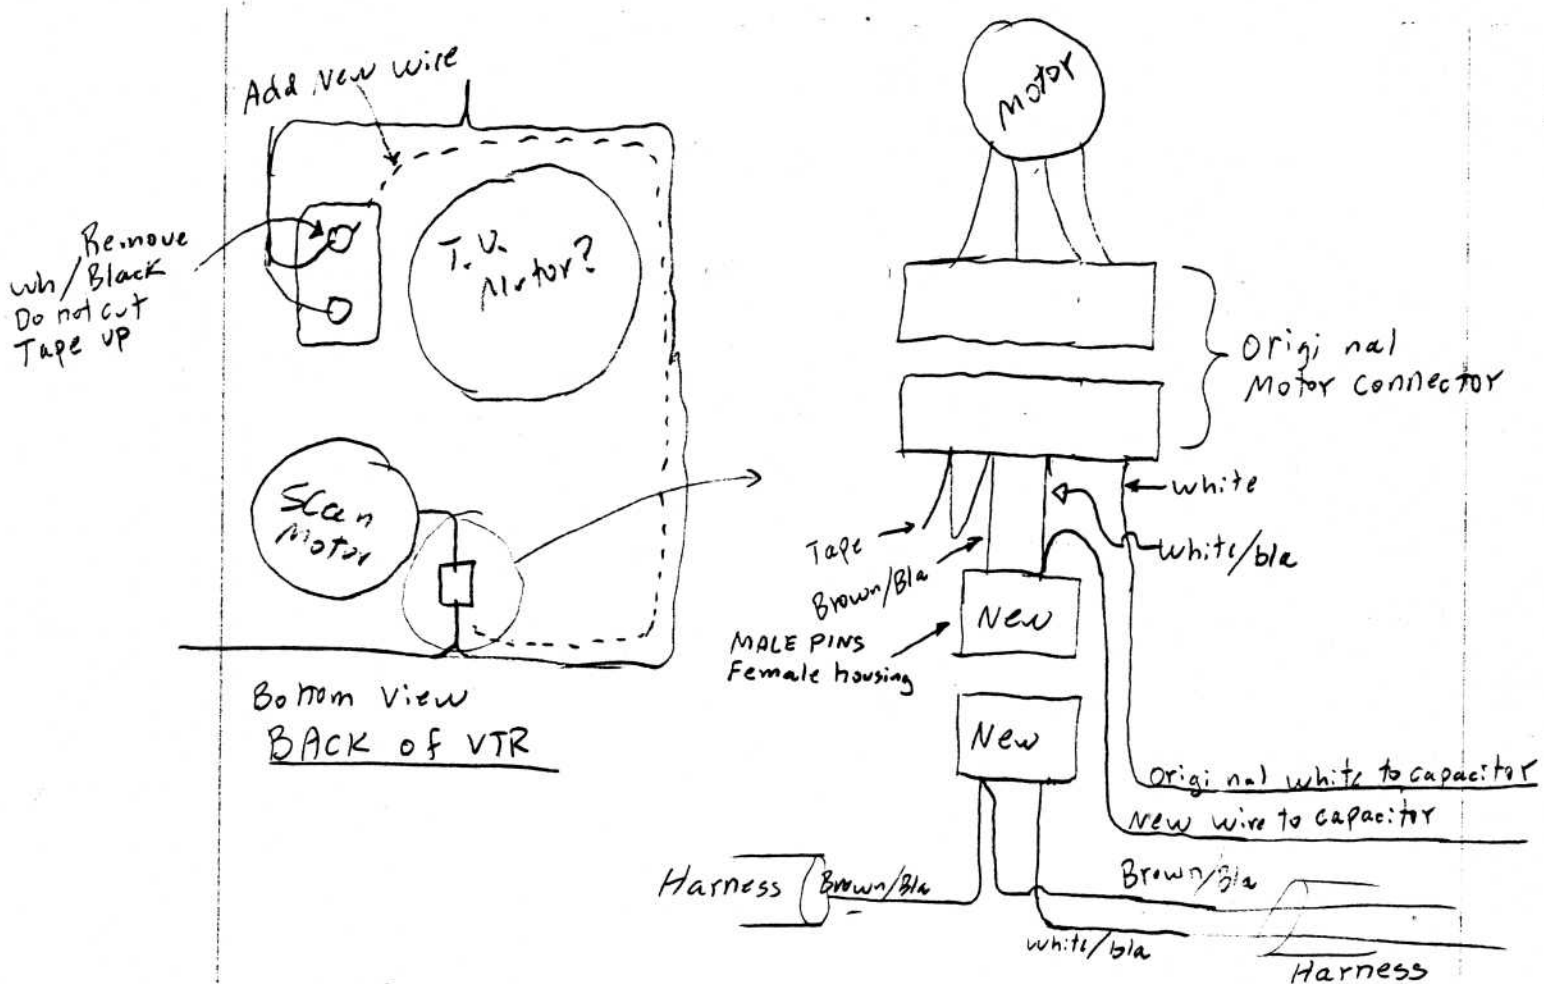 Add New wire
Remove
wh/Black
Do not cut
Tape up
T.U.
Motor?
Scan
Motor
Bottom View
BACK of VTR
Motor
Original
Motor connector
white
white/bla
Tape
Brown/Bla
MALE PINS
Female housing
New
New
Original white to capacitor
New wire to capacitor
Harness
Brown/Bla
Brown/Bla
white/bla
Harness